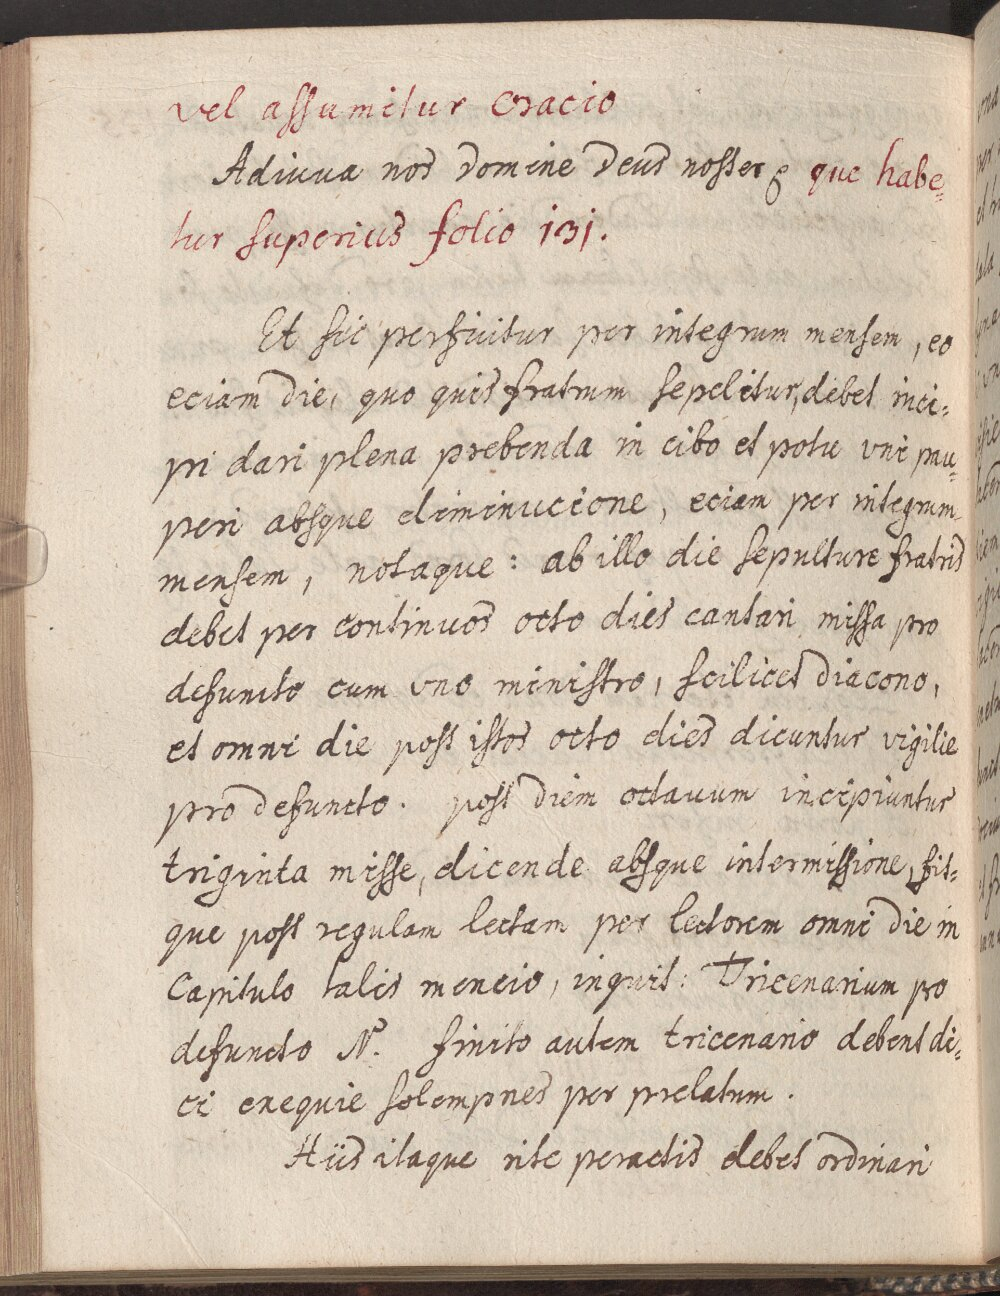 vel assumitur Oracio
Adiuva nos domine deus noster &c que habe=
tur superius folio 131.
Et sic perficitur per integrum mensem, eo
eciam die, quo quis fratrum sepelitur, debet inci=
pi dari plena prebenda in cibo et potu vni pau=
peri absque diminucione, eciam per integrum
mensem, notaque: ab illo die sepulture fratris
debet per continuos octo dies cantari missa pro
defuncto cum vno ministro, scilicet diacono,
et omni die post istos octo dies dicuntur vigilie
pro defuncto. post diem octauum incipiuntur
triginta misse, dicende absque intermissione, fit=
que post regulam lectam per lectorem omni die in
Capitulo talis mencio, inquit: Tricenarium pro
defuncto N. finito autem tricenario debent di=
ci exequie solempnes per prelatum.
Hiis itaque rite peractis debet ordinari